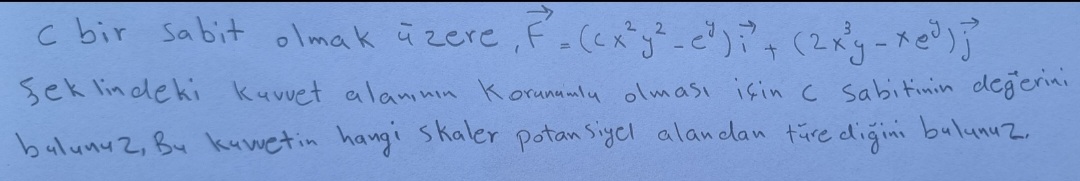 c bir sabit olmak üzere, F⃗ = (cx²y² - eʸ) i⃗ + (2x³y - xeʸ) j⃗
Şeklindeki kuvvet alanının Korunumlu olması için c sabitinin değerini
bulunuz, Bu kuvvetin hangi skaler potansiyel alandan türediğini bulunuz.